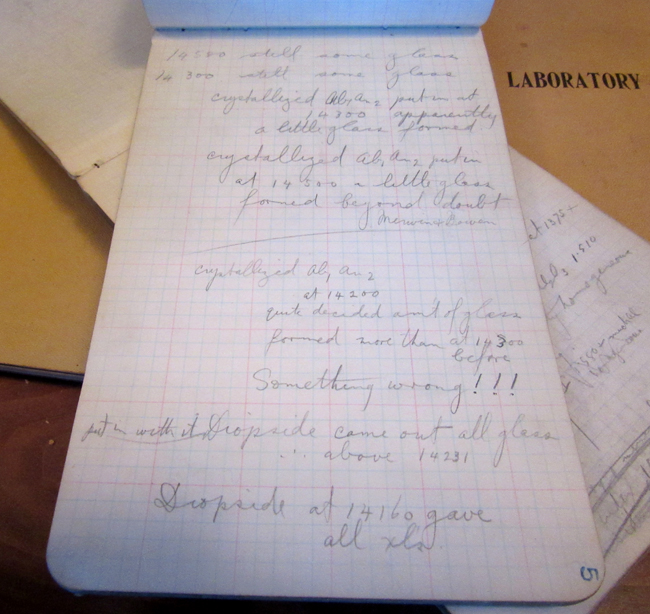 14500 still some glass
14300 still some glass
crystallized Ab, An2 put in at
14300 apparently
a little glass formed
crystallized Ab, An2 put in
at 14300 a little glass
formed beyond doubt
Merwin & Bowen
crystallized Ab, An2
at 14200
quite decided amt of glass
formed more than at 14300
before
Something wrong!!!
put in with it, Diopside came out all glass
∴ above 14231
Diopside at 14160 gave
all xls
5
LABORATORY
at 1375
1510
homogeneous